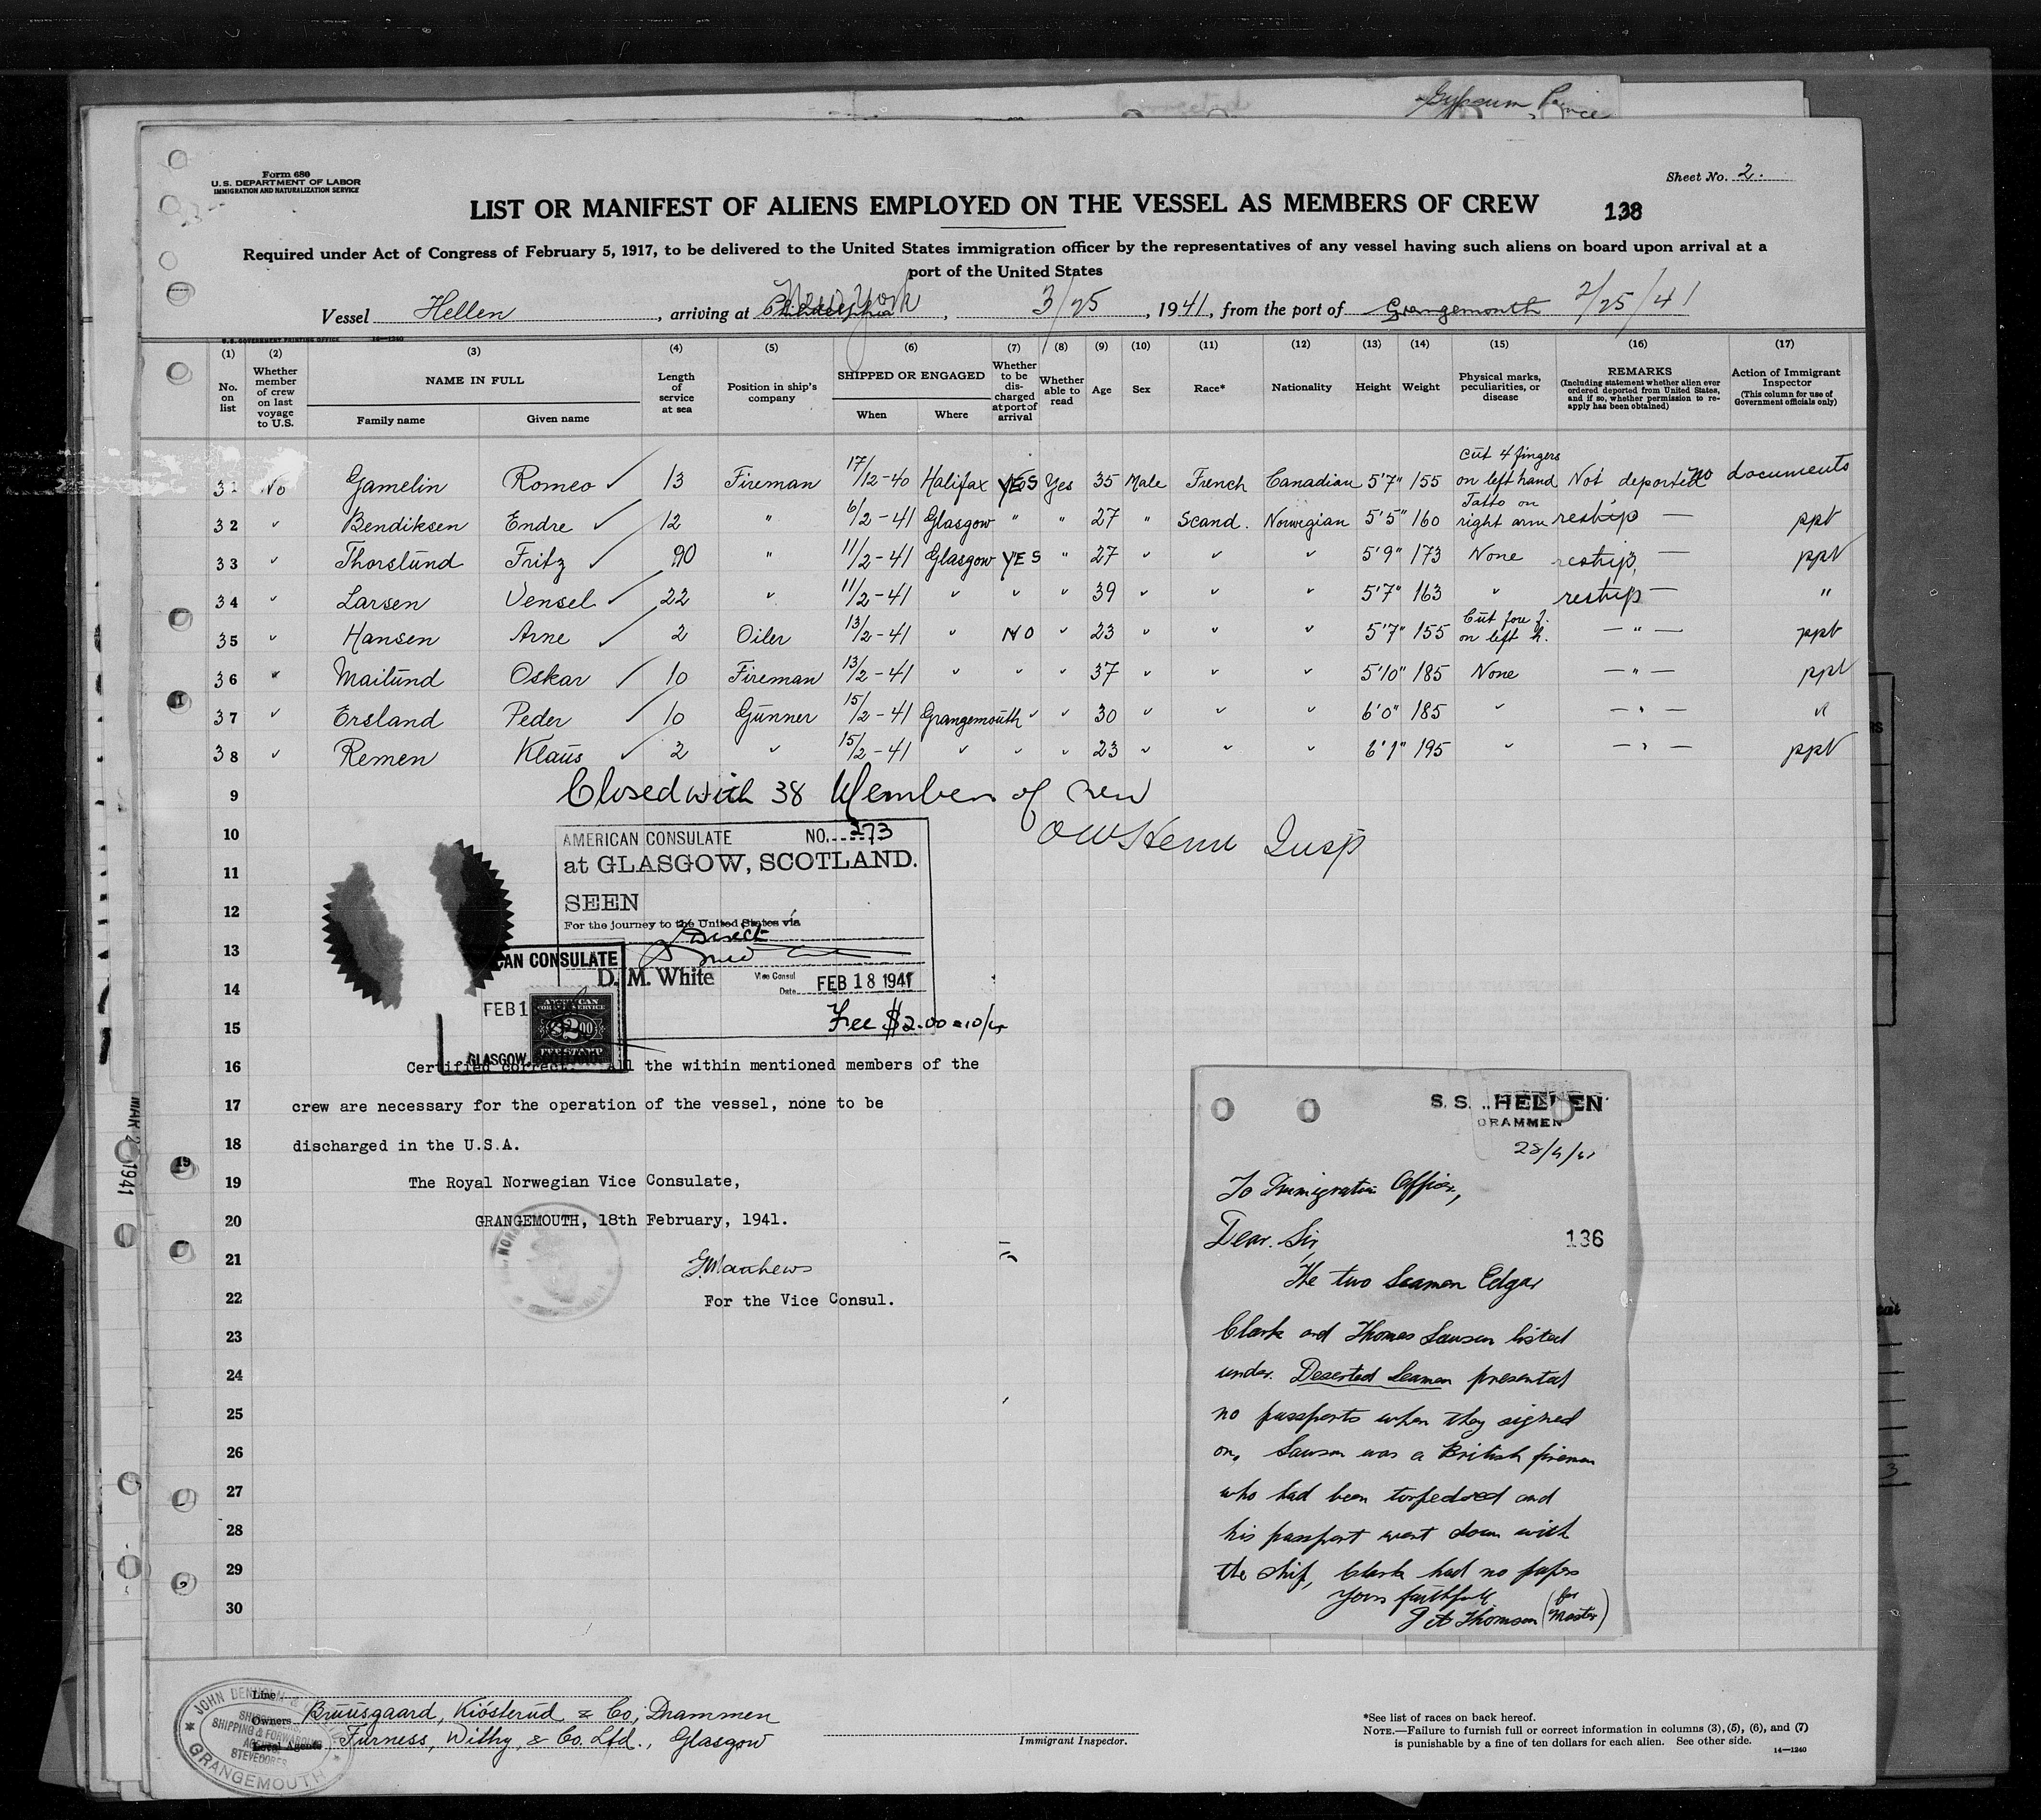 Gypsum
Form 680
U. S. DEPARTMENT OF LABOR
IMMIGRATION AND NATURALIZATION SERVICE
Sheet No. 2.
LIST OR MANIFEST OF ALIENS EMPLOYED ON THE VESSEL AS MEMBERS OF CREW 138
Required under Act of Congress of February 5, 1917, to be delivered to the United States immigration officer by the representatives of any vessel having such aliens on board upon arrival at a
port of the United States
Vessel Hellen, arriving at Philadelphia New York, 3/25, 1941, from the port of Grangemouth 2/25/41
U. S. GOVERNMENT PRINTING OFFICE 14—1240
(1) (2) (3) (4) (5) (6) (7) (8) (9) (10) (11) (12) (13) (14) (15) (16) (17)
No. on list
Whether member of crew on last voyage to U.S.
NAME IN FULL
Family name Given name
Length of service at sea
Position in ship's company
SHIPPED OR ENGAGED
When Where
Whether to be discharged at port of arrival
Whether able to read
Age
Sex
Race*
Nationality
Height
Weight
Physical marks, peculiarities, or disease
REMARKS
(Including statement whether alien ever ordered deported from United States, and if so, whether permission to reapply has been obtained)
Action of Immigrant Inspector
(This column for use of Government officials only)
31 No Gamelin Romeo ✓ 13 Fireman 17/12-40 Halifax YES Yes 35 Male French Canadian 5'7" 155 Cut 4 fingers on left hand Not deported no documents
32 " Bendiksen Endre ✓ 12 " 6/2-41 Glasgow " " 27 " Scand. Norwegian 5'5" 160 Tatto on right arm reship — ppt
33 " Thorslund Fritz ✓ 90 " 11/2-41 Glasgow YES " 27 " " " 5'9" 173 None reship, — ppt
34 " Larsen Vensel ✓ 22 " 11/2-41 " " " 39 " " " 5'7" 163 " reship — "
35 " Hansen Arne ✓ 2 Oiler 13/2-41 " NO " 23 " " " 5'7" 155 Cut fore f. on left h. — " — ppt
36 " Mailund Oskar ✓ 10 Fireman 13/2-41 " " " 37 " " " 5'10" 185 None — " — ppt
37 " Ersland Peder ✓ 10 Gunner 15/2-41 Grangemouth " " 30 " " " 6'0" 185 " — " — "
38 " Remen Klaus ✓ 2 " 15/2-41 " " " 23 " " " 6'1" 195 " — " — ppt
9 Closed with 38 Members of Crew
10
Insp
AMERICAN CONSULATE NO. 273
at GLASGOW, SCOTLAND.
11
SEEN
12
For the journey to the United States via
Direct
13
D. M. White Vice Consul
14
Date FEB 18 1941
15
Fee $2.00 = 10/-
CAN CONSULATE
FEB 1
AMERICAN
SERVICE
$2.00
GLASGOW, SCOTLAND.
16 Certified correct. All the within mentioned members of the
17 crew are necessary for the operation of the vessel, none to be
18 discharged in the U.S.A.
19 The Royal Norwegian Vice Consulate,
20 GRANGEMOUTH, 18th February, 1941.
21 G Matthews
22 For the Vice Consul.
23
24
25
26
27
28
29
30
MAR 2 1941
19
S. S. "HELLEN"
DRAMMEN
To Immigration Officer,
Dear Sir, 136
The two Seamen Edgar
Clark and Thomas Lawson listed
under Deserted Seamen presented
no passports when they signed
on. Lawson was a British fireman
who had been torpedoed and
his passport went down with
the ship, Clark had no papers
Yours faithfully
Thomson (for Master)
Line
Owners Bruusgaard, Kiøsterud & Co, Drammen
Local Agents Furness, Withy, & Co. Ltd., Glasgow
JOHN DENHOLM &
SHIPPING & FORWARDING
STEVEDORES
GRANGEMOUTH
Immigrant Inspector.
*See list of races on back hereof.
NOTE.—Failure to furnish full or correct information in columns (3), (5), (6), and (7)
is punishable by a fine of ten dollars for each alien. See other side.
14—1240